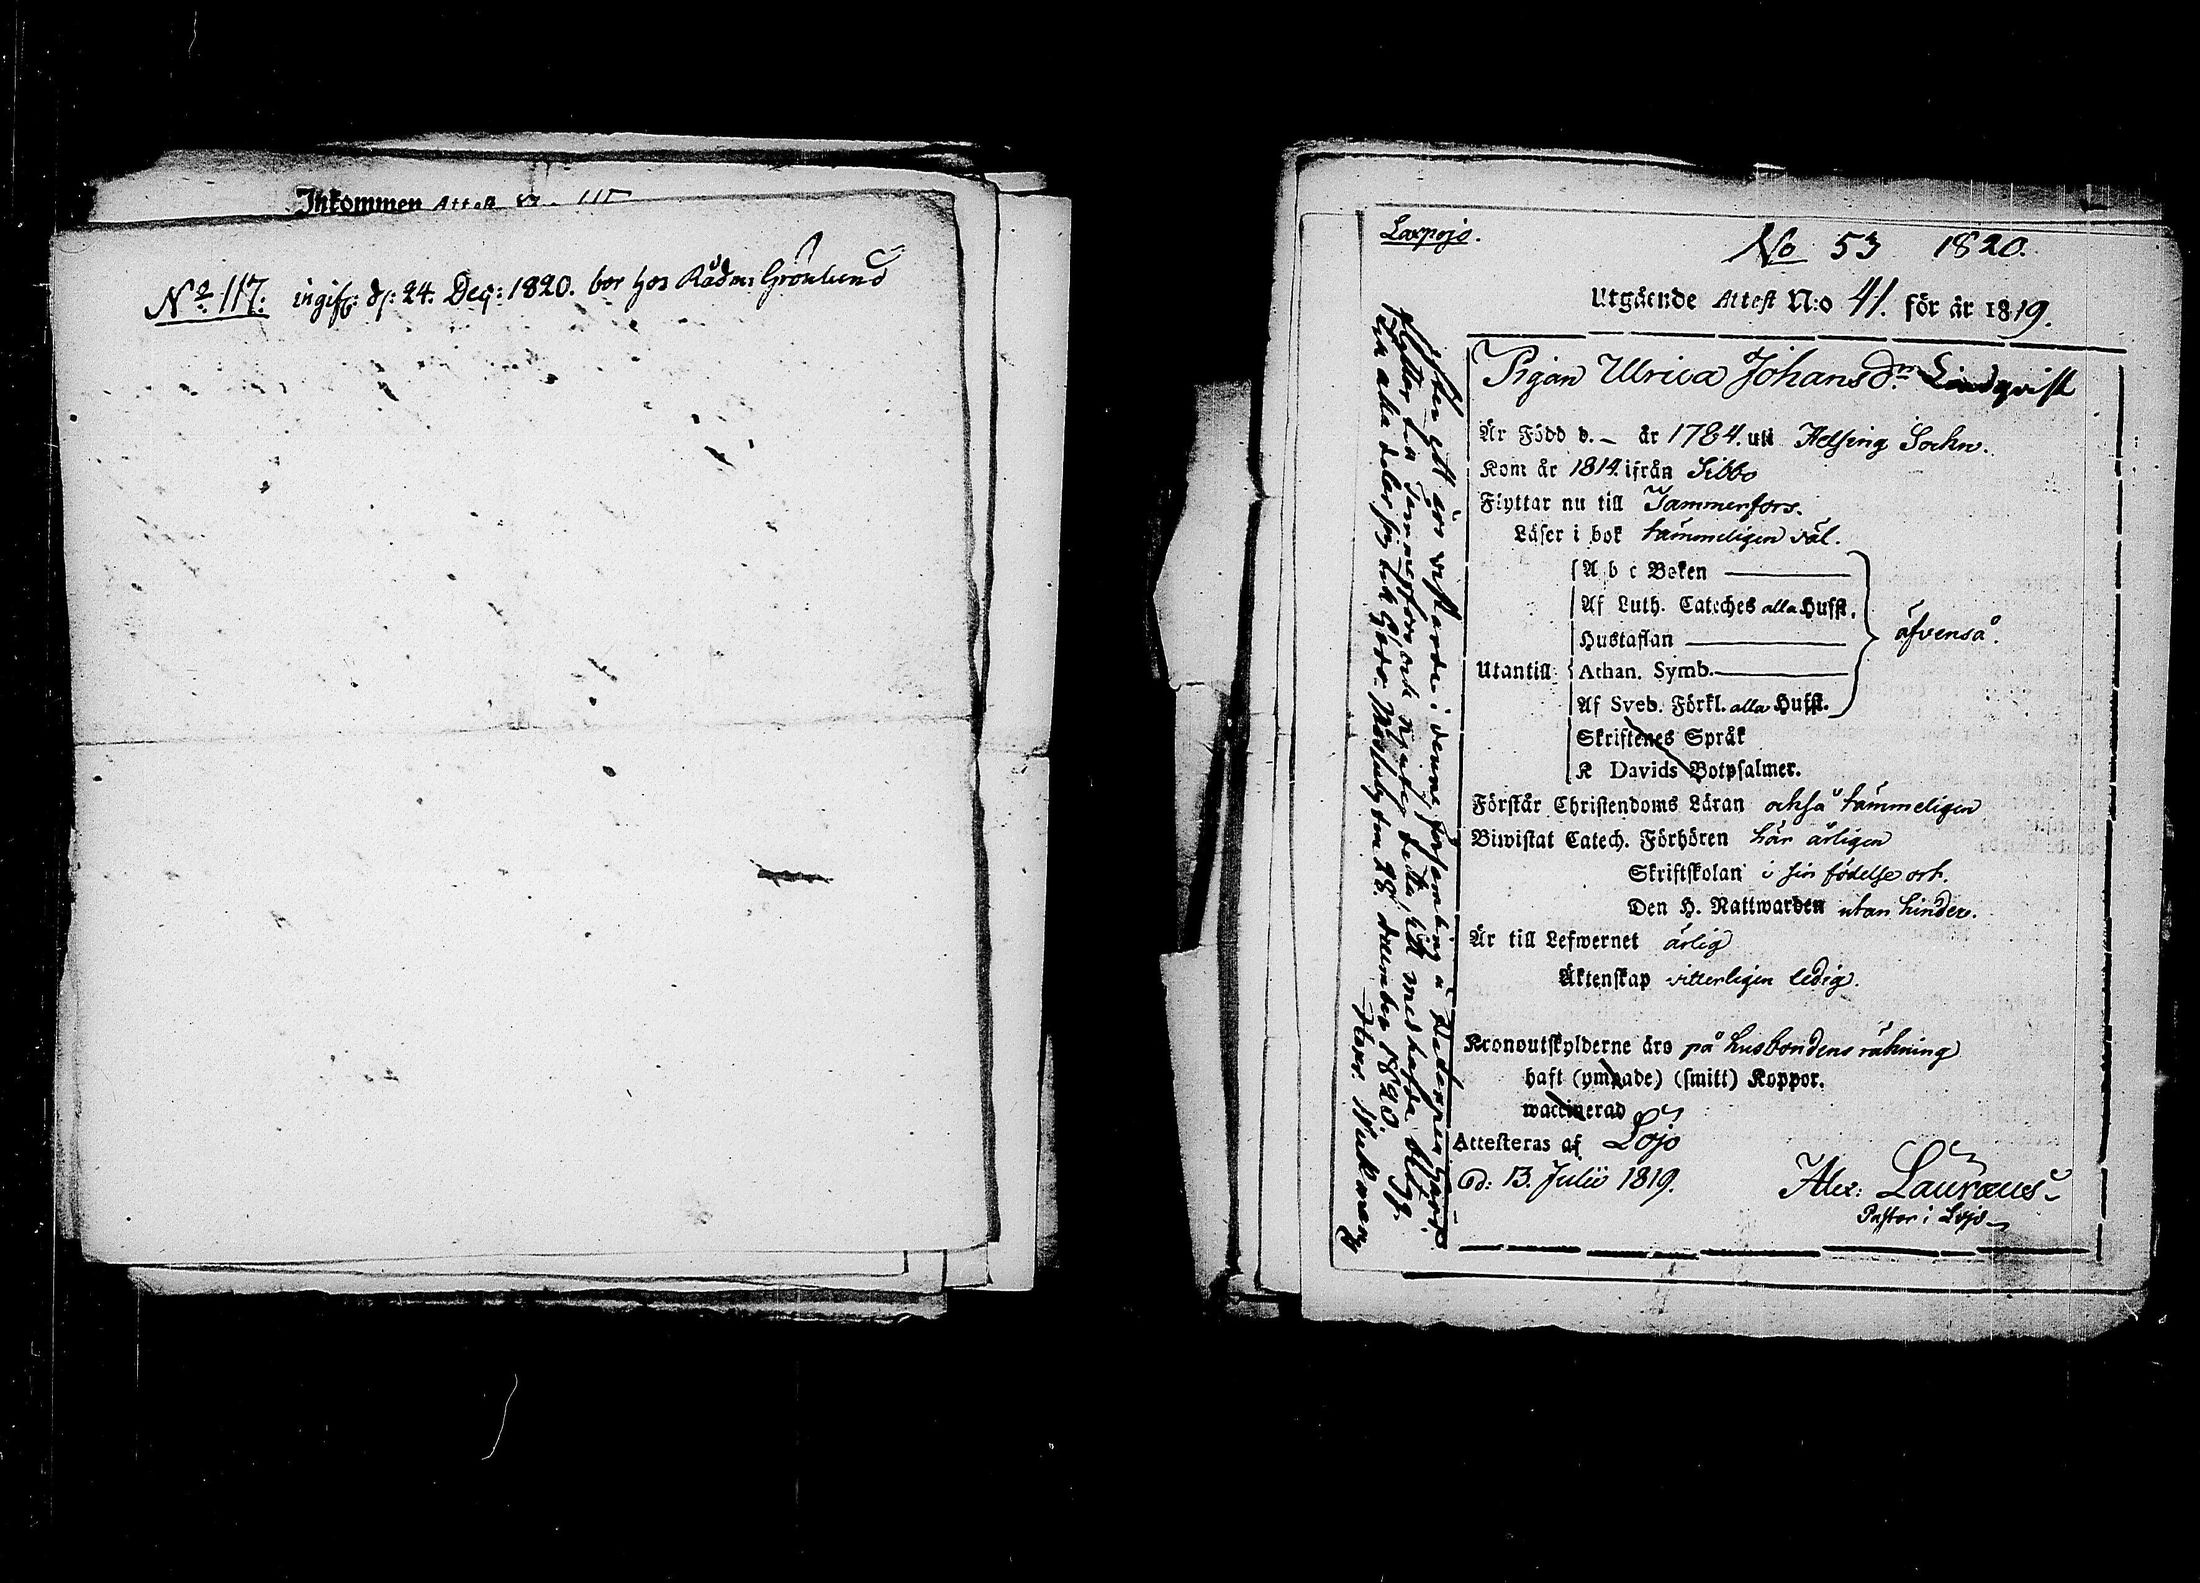 Inkommen Attest N:o 115
N:o 117. ingifv: d: 24. Dec: 1820. bor hos Rådm: Grönlund
Laxpojo.
No 53 1820.
Utgående Attest N:o 41. för år 1819.
Pigan Ulrica Johansdr Lindqvist
Är Född d. – år 1784. uti Helsing Sochn.
Kom år 1814 ifrån Sibbo
Flyttar nu till Tammerfors.
Läser i bok tämmeligen väl.
A b c Boken
Af Luth. Cateches alla Hufst.
Hustaflan
äfvenså.
Utantill Athan. Symb.
Af Sveb. Förkl. alla Hufst.
Skriftenes Språk
K Davids Botpsalmer.
Förstår Christendoms Läran också tämmeligen
Biwistat Catech. Förhören här årligen
Skriftskolan i sin födelse ort.
Den H. Nattwarden utan hinder.
Är till Lefwernet ärlig
Äktenskap vitterligen ledig.
Kronoutskylderne äro på husbondens räkning
haft (ympade) (smitt) Koppor.
waccinerad
Attesteras af Lojo
d: 13. Julii 1819.
Alex: Lauræus
Pastor i Lojo
Efter ett års vistande i denne församling å
flyttar till Tammerfors och niuter detta, till med hafde
den 28 december 1820.